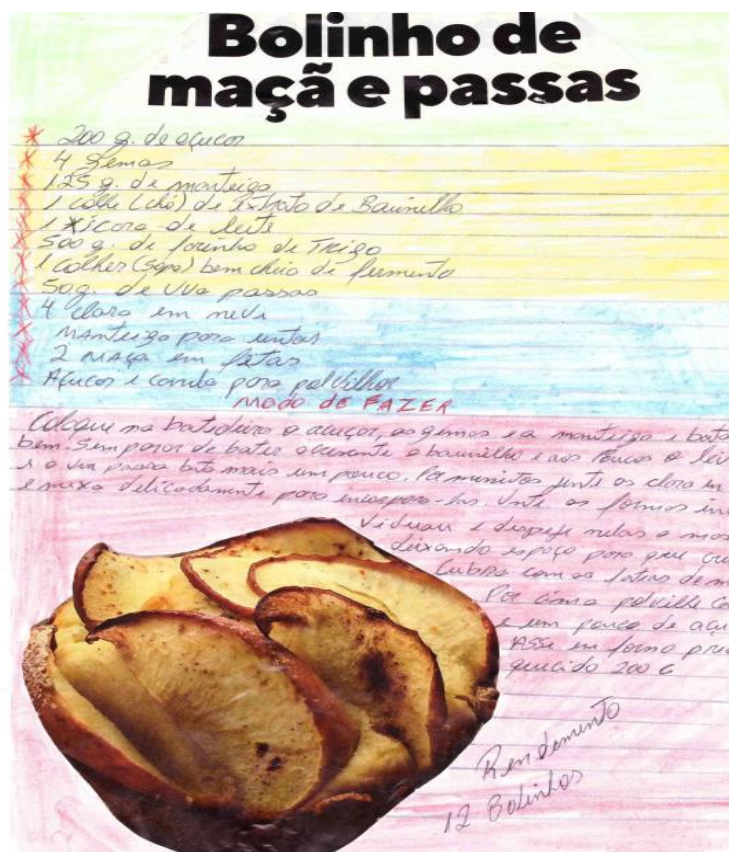 Bolinho de
maçã e passas
200 g. de açucar
4 gemas
125 g. de manteiga
1 colhe (chá) de Extrato de Baunilha
1 xícara de leite
500 g. de farinha de Trigo
1 colher (sopa) bem cheia de fermento
50 g. de uva passas
4 clara em neve
Manteiga para untar
2 maça em fatas
Açucar e canela para polvilhar
MODO DE FAZER
Coloque na batedeira o açucar, as gemas e a manteiga e bata
bem. Sem parar de bater acrescente a baunilha e aos Poucos o
e a uva passa bata mais um pouco. Por junte as clara em
e mexa delicadamente para incorpora-las. Unte as formas
e despeje nelas a
deixando espaço para que
Cubra com as fatias de
Por cima polvilhe
e um pouco de
Asse em forno
200 C
Rendemento
12 Bolinhos